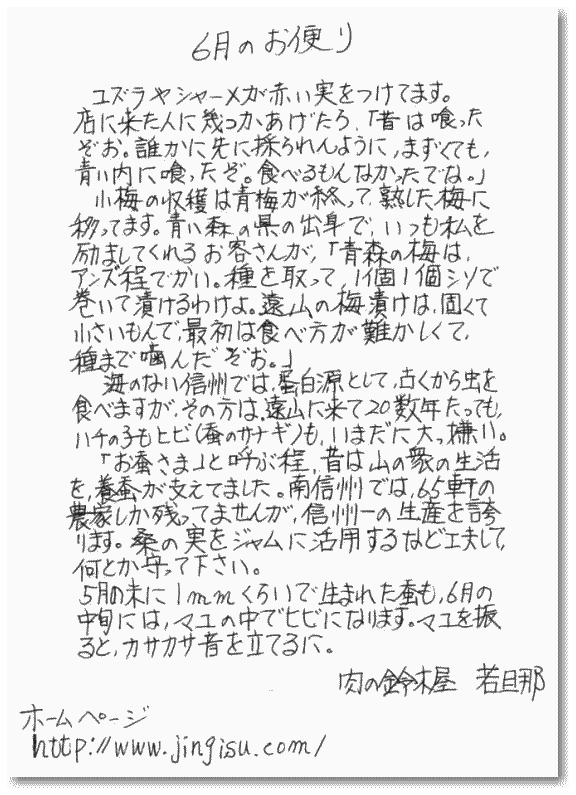 6月のお便り
ユズラヤシャーメが赤い実をつけてます。
店に来た人に幾つかあげたら、「昔は喰った
ぞお。誰かに先に採られんように、まずくても、
青い内に喰ったぞ。食べるもんなかったでな。」
小梅の収穫は青梅が終って、熟した梅に
移ってます。青い森の県の出身で、いつも私を
励ましてくれるお客さんが、「青森の梅は、
アンズ程でかい。種を取って、1個1個シソで
巻いて漬けるわけよ。遠山の梅漬けは、固くて
小さいもんで、最初は食べ方が難かしくて、
種まで噛んだぞお。」
海のない信州では、蛋白源として、古くから虫を
食べますが、その方は、遠山に来て20数年たっても、
ハチの子もヒビ(蚕のサナギ)も、いまだに大っ嫌い。
「お蚕さま」と呼ぶ程、昔は山の衆の生活
を、養蚕が支えてました。南信州では、65軒の
農家しか残ってませんが、信州一の生産を誇
ります。桑の実をジャムに活用するなど工夫して、
何とか守って下さい。
5月の末に1mmくらいで生まれた蚕も、6月の
中旬には、マユの中でヒビになります。マユを振
ると、カサカサ音を立てるに。
肉の鈴木屋 若旦那
ホームページ
http://www.jingisu.com/